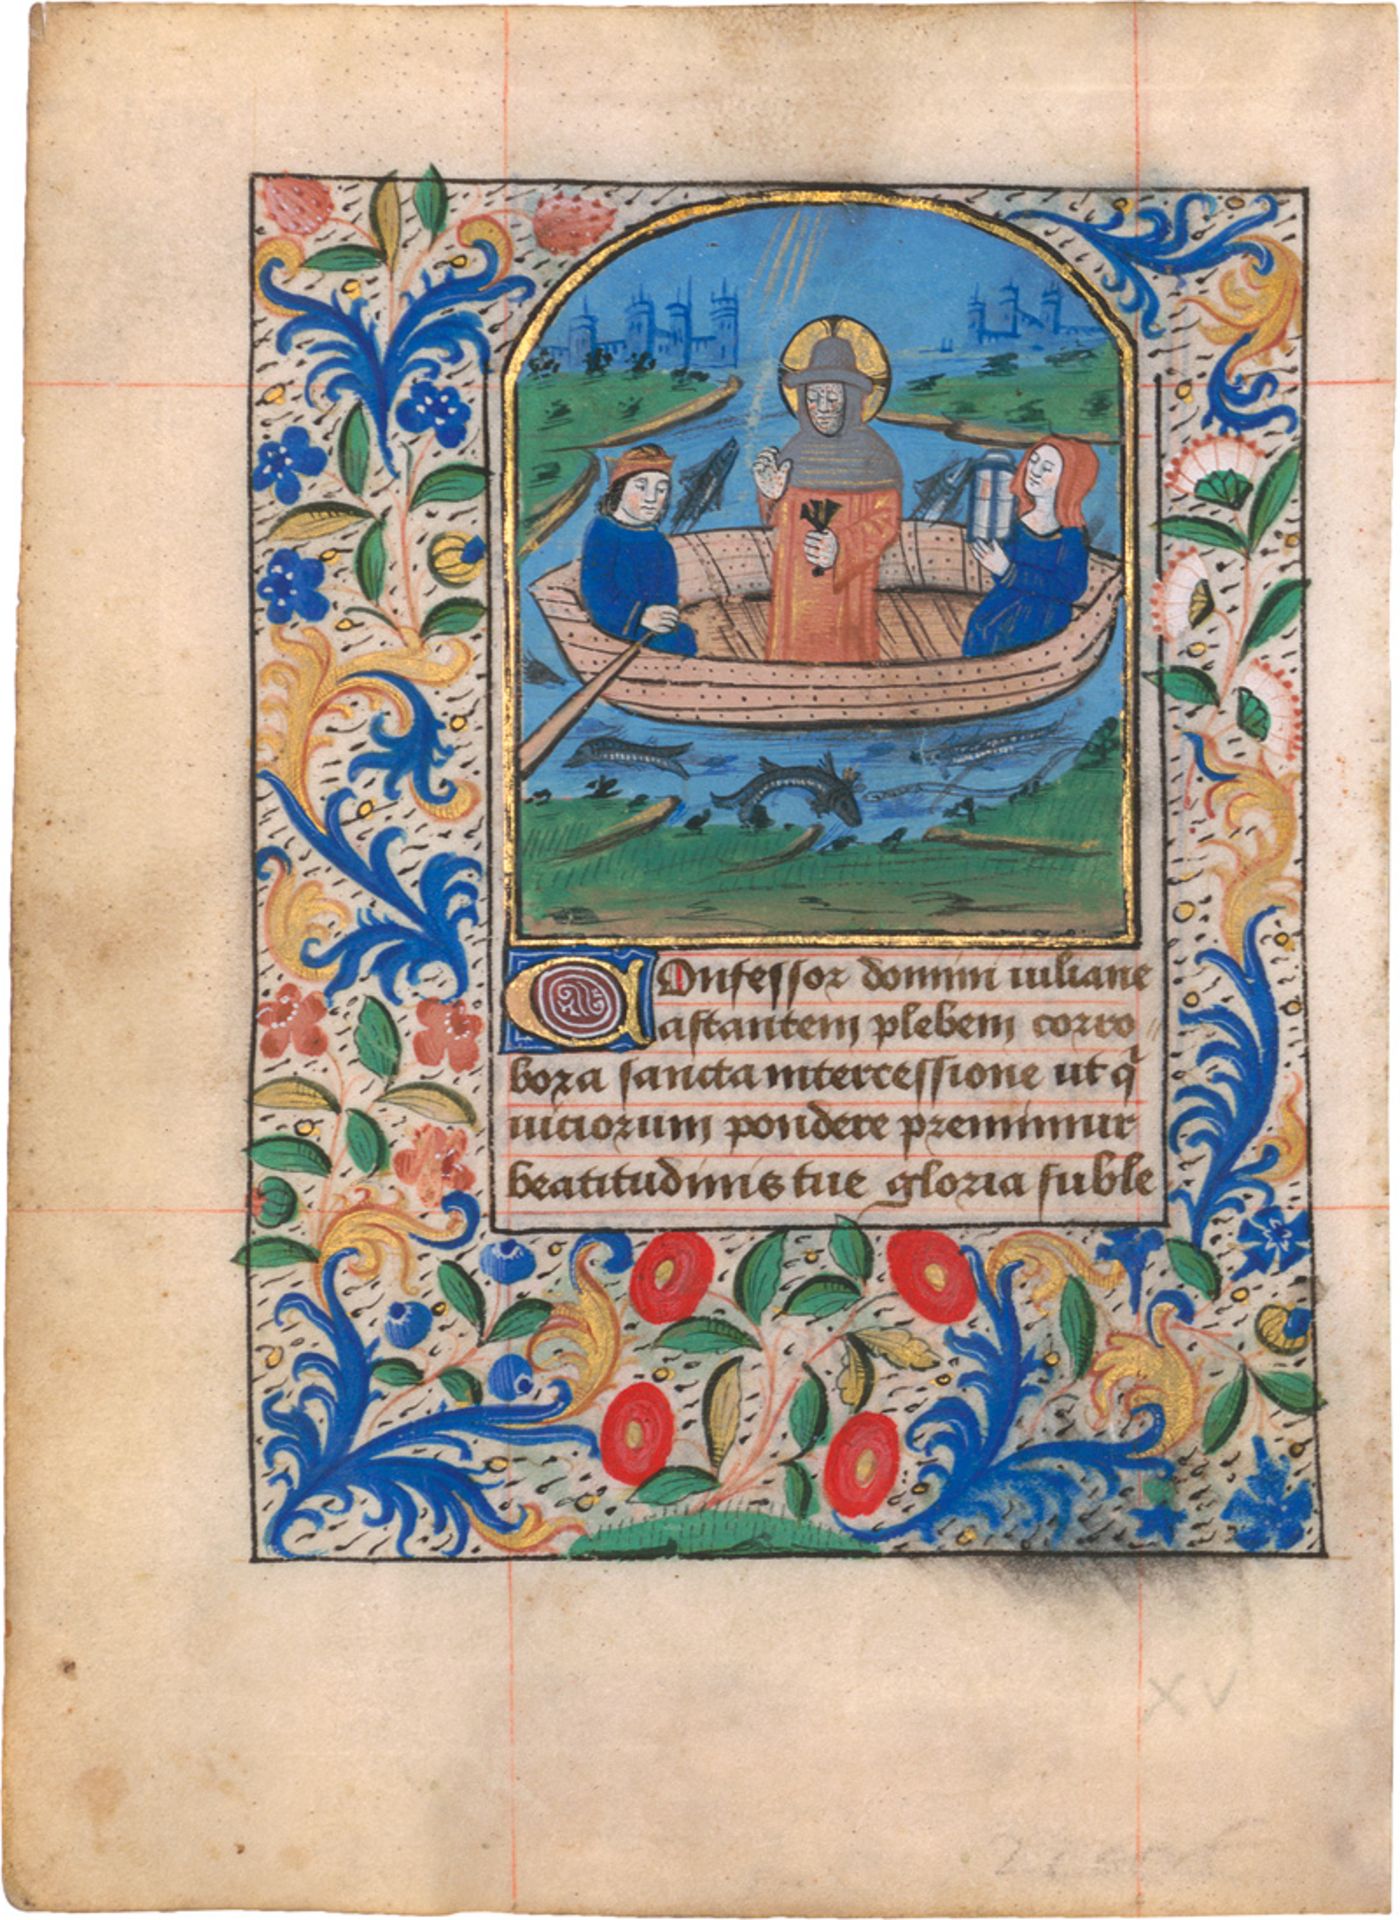 Confessor domini iuliane
astantem plebem corro
bora sancta intercessione ut q̃
uiciorum pondere premimur
beatitudinis tue gloria suble
XV